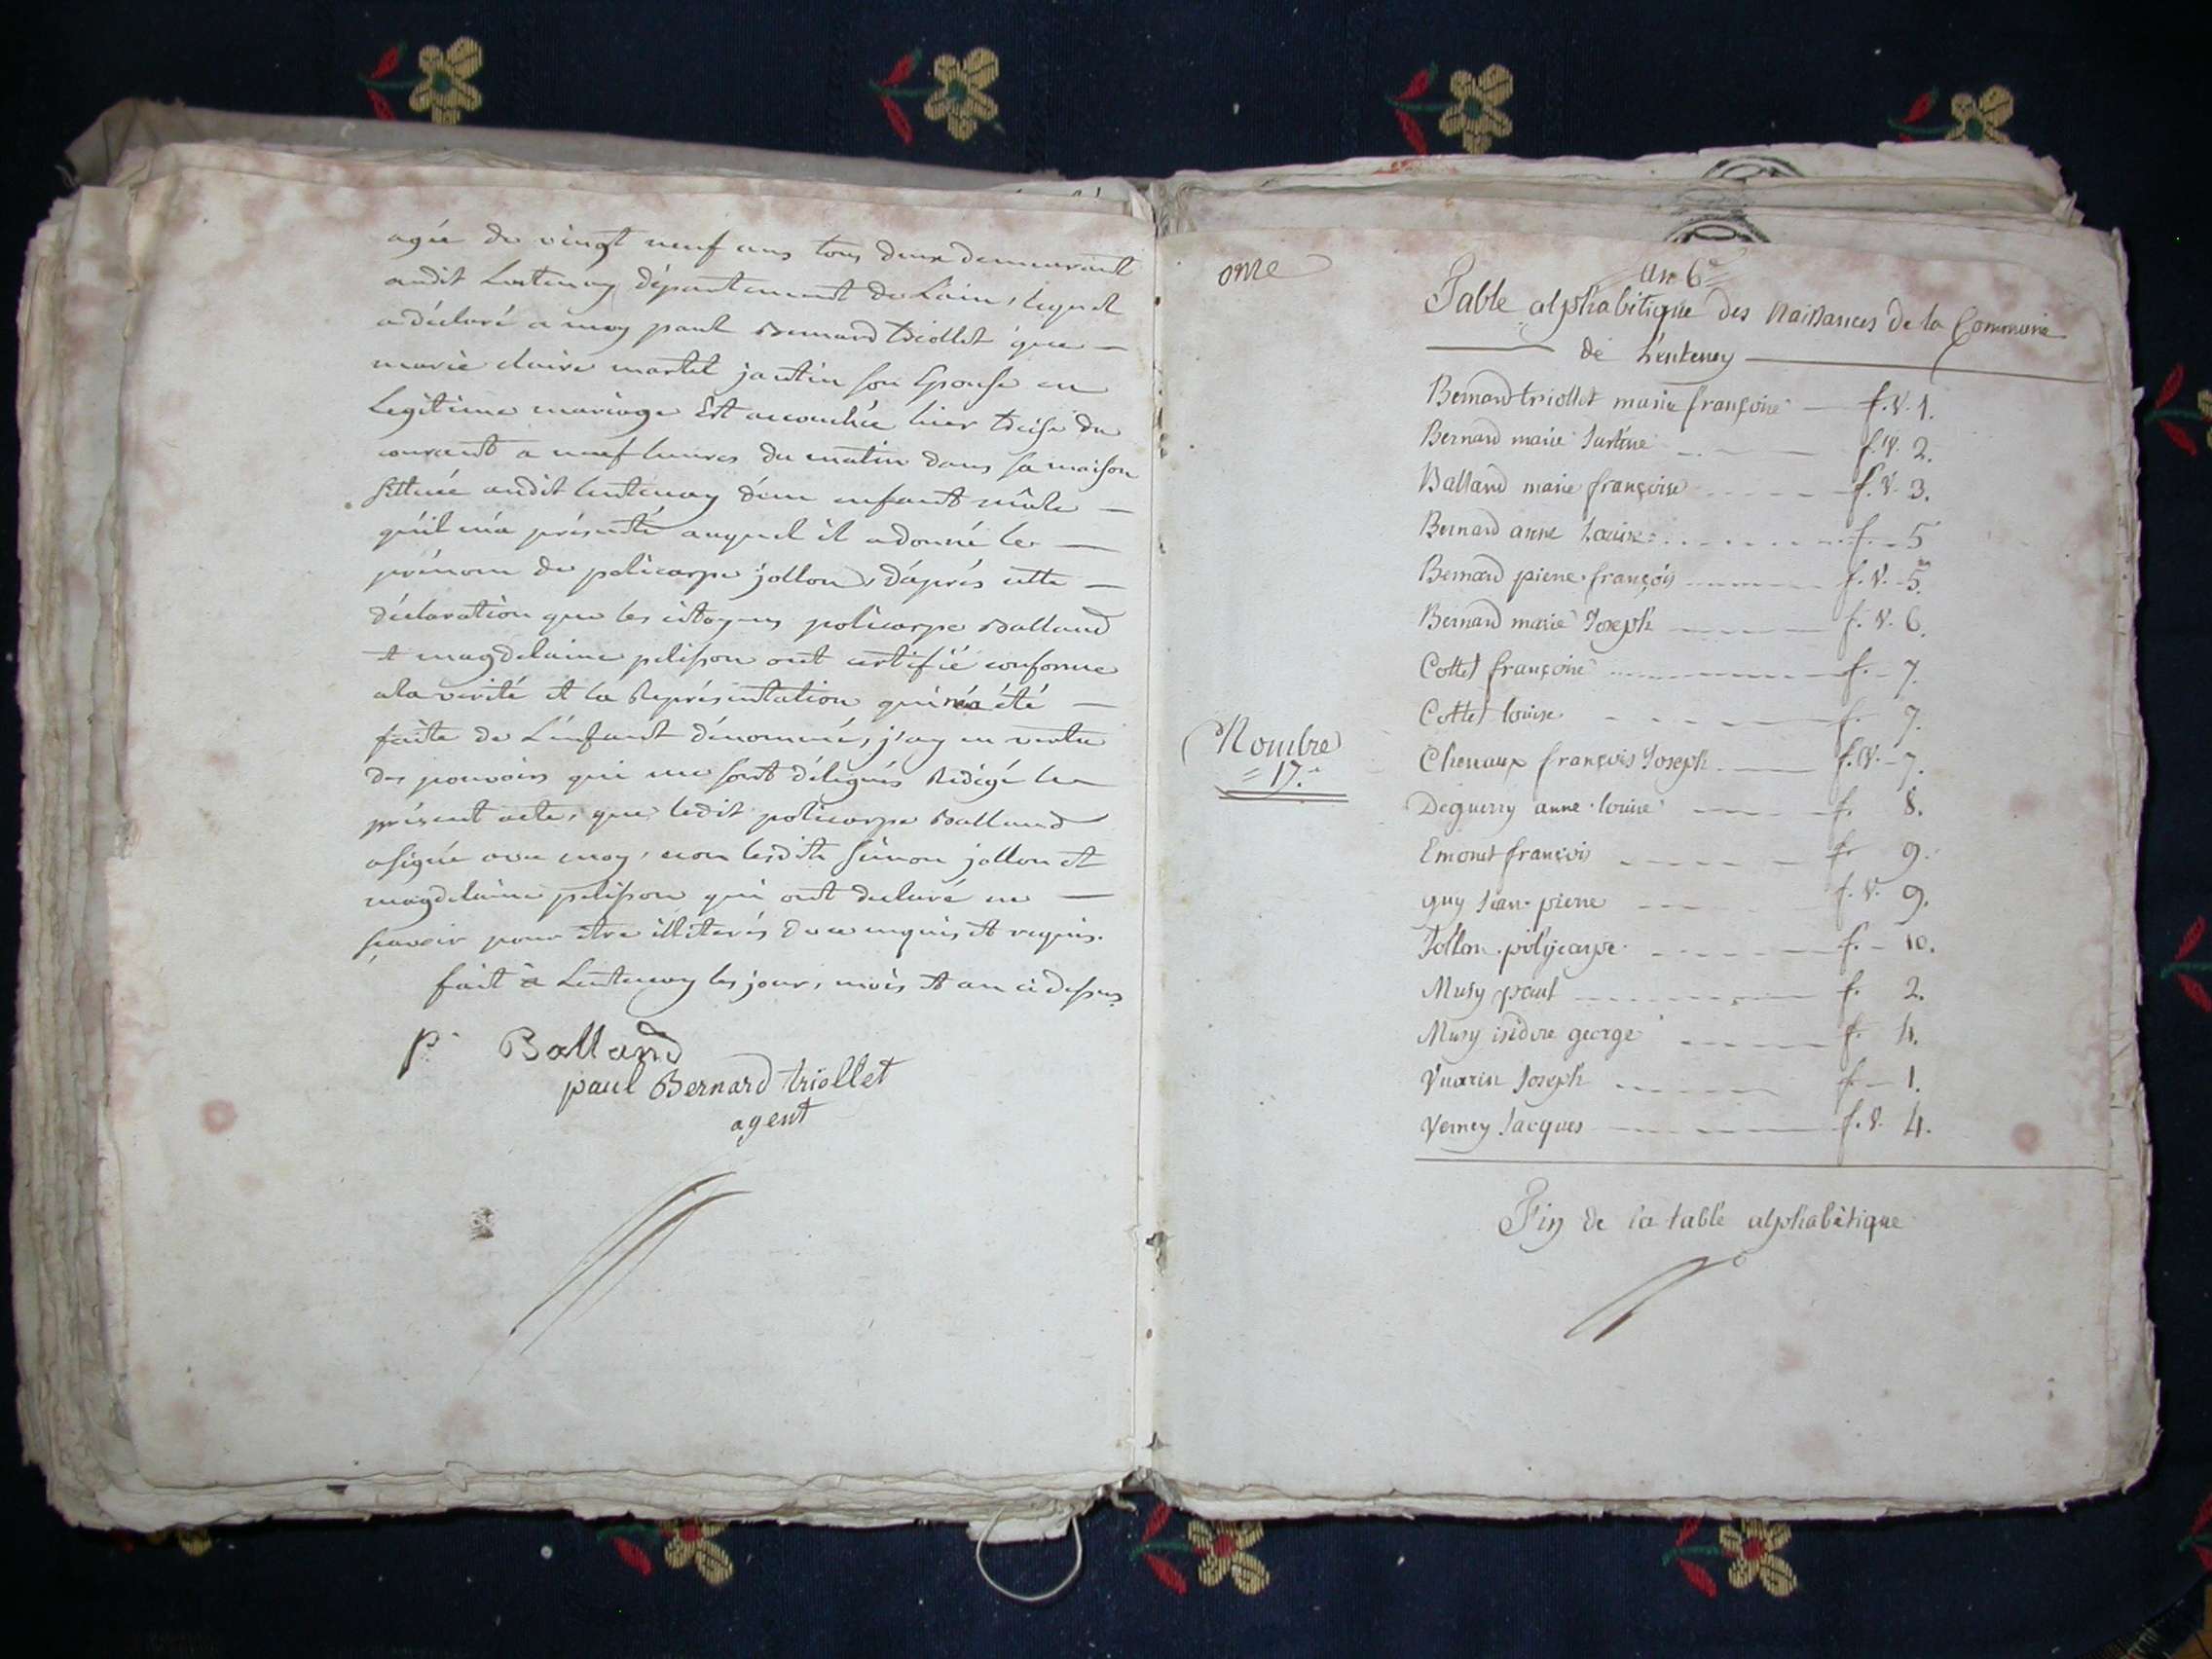 agée de vingt neuf ans tous deux demeurant
audit Lentenay département de Lain, lequel
a déclaré a moy paul Bernard triollet que —
marie claire martel jantin son Epouse en
Legitime mariage Est accouchée hier treise du
courant a neuf heures du matin dans sa maison
sittuée audit lentenay d'un enfant mâle —
qu'il m'a présenté auquel il a donné le —
prénom de policarpe jollon, d'aprés cette —
déclaration que les citoyens policarpe Balland
et magdelaine pelisson ont certifié conforme
a la verité et la Représentation qui m'a été —
faite de L'enfant dénommé, j'ay en vertu
des pouvoirs qui me sont délegués Redigé le
présent acte, que ledit policarpe Balland
a signé avec moy, non lesdits simon jollon et
magdelaine pelisson qui ont declaré ne —
sçavoir pour être illiterés de ce enquis et requis.
fait a Lentenay les jour, mois et an ci dessus
p. Balland
paul Bernard triollet
agent
onze
an 6e
Table alphabétique des Naissances de la Commune
de Lentenay
Bernard triollet marie françoise — f. V. 1.
Bernard marie f. V. 2.
Balland marie françoise f. V. 3.
Bernard anne Louise f. 5
Bernard pierre françois f. V. 5.
Bernard marie Joseph f. V. 6.
Cottet françoise f. 7.
Cottet louise f. 7.
Nombre
= 17. =
Chenaux françois Joseph f. V. 7.
Deguerry anne louise f. 8.
Emonet françois f. 9.
guy Jean pierre f. V. 9.
Jollon polycarpe f. 10.
Musy paul f. 2.
Musy isidore george f. 4.
Vuarin Joseph f. 1.
Verney Jacques f. V. 4.
Fin de la table alphabétique